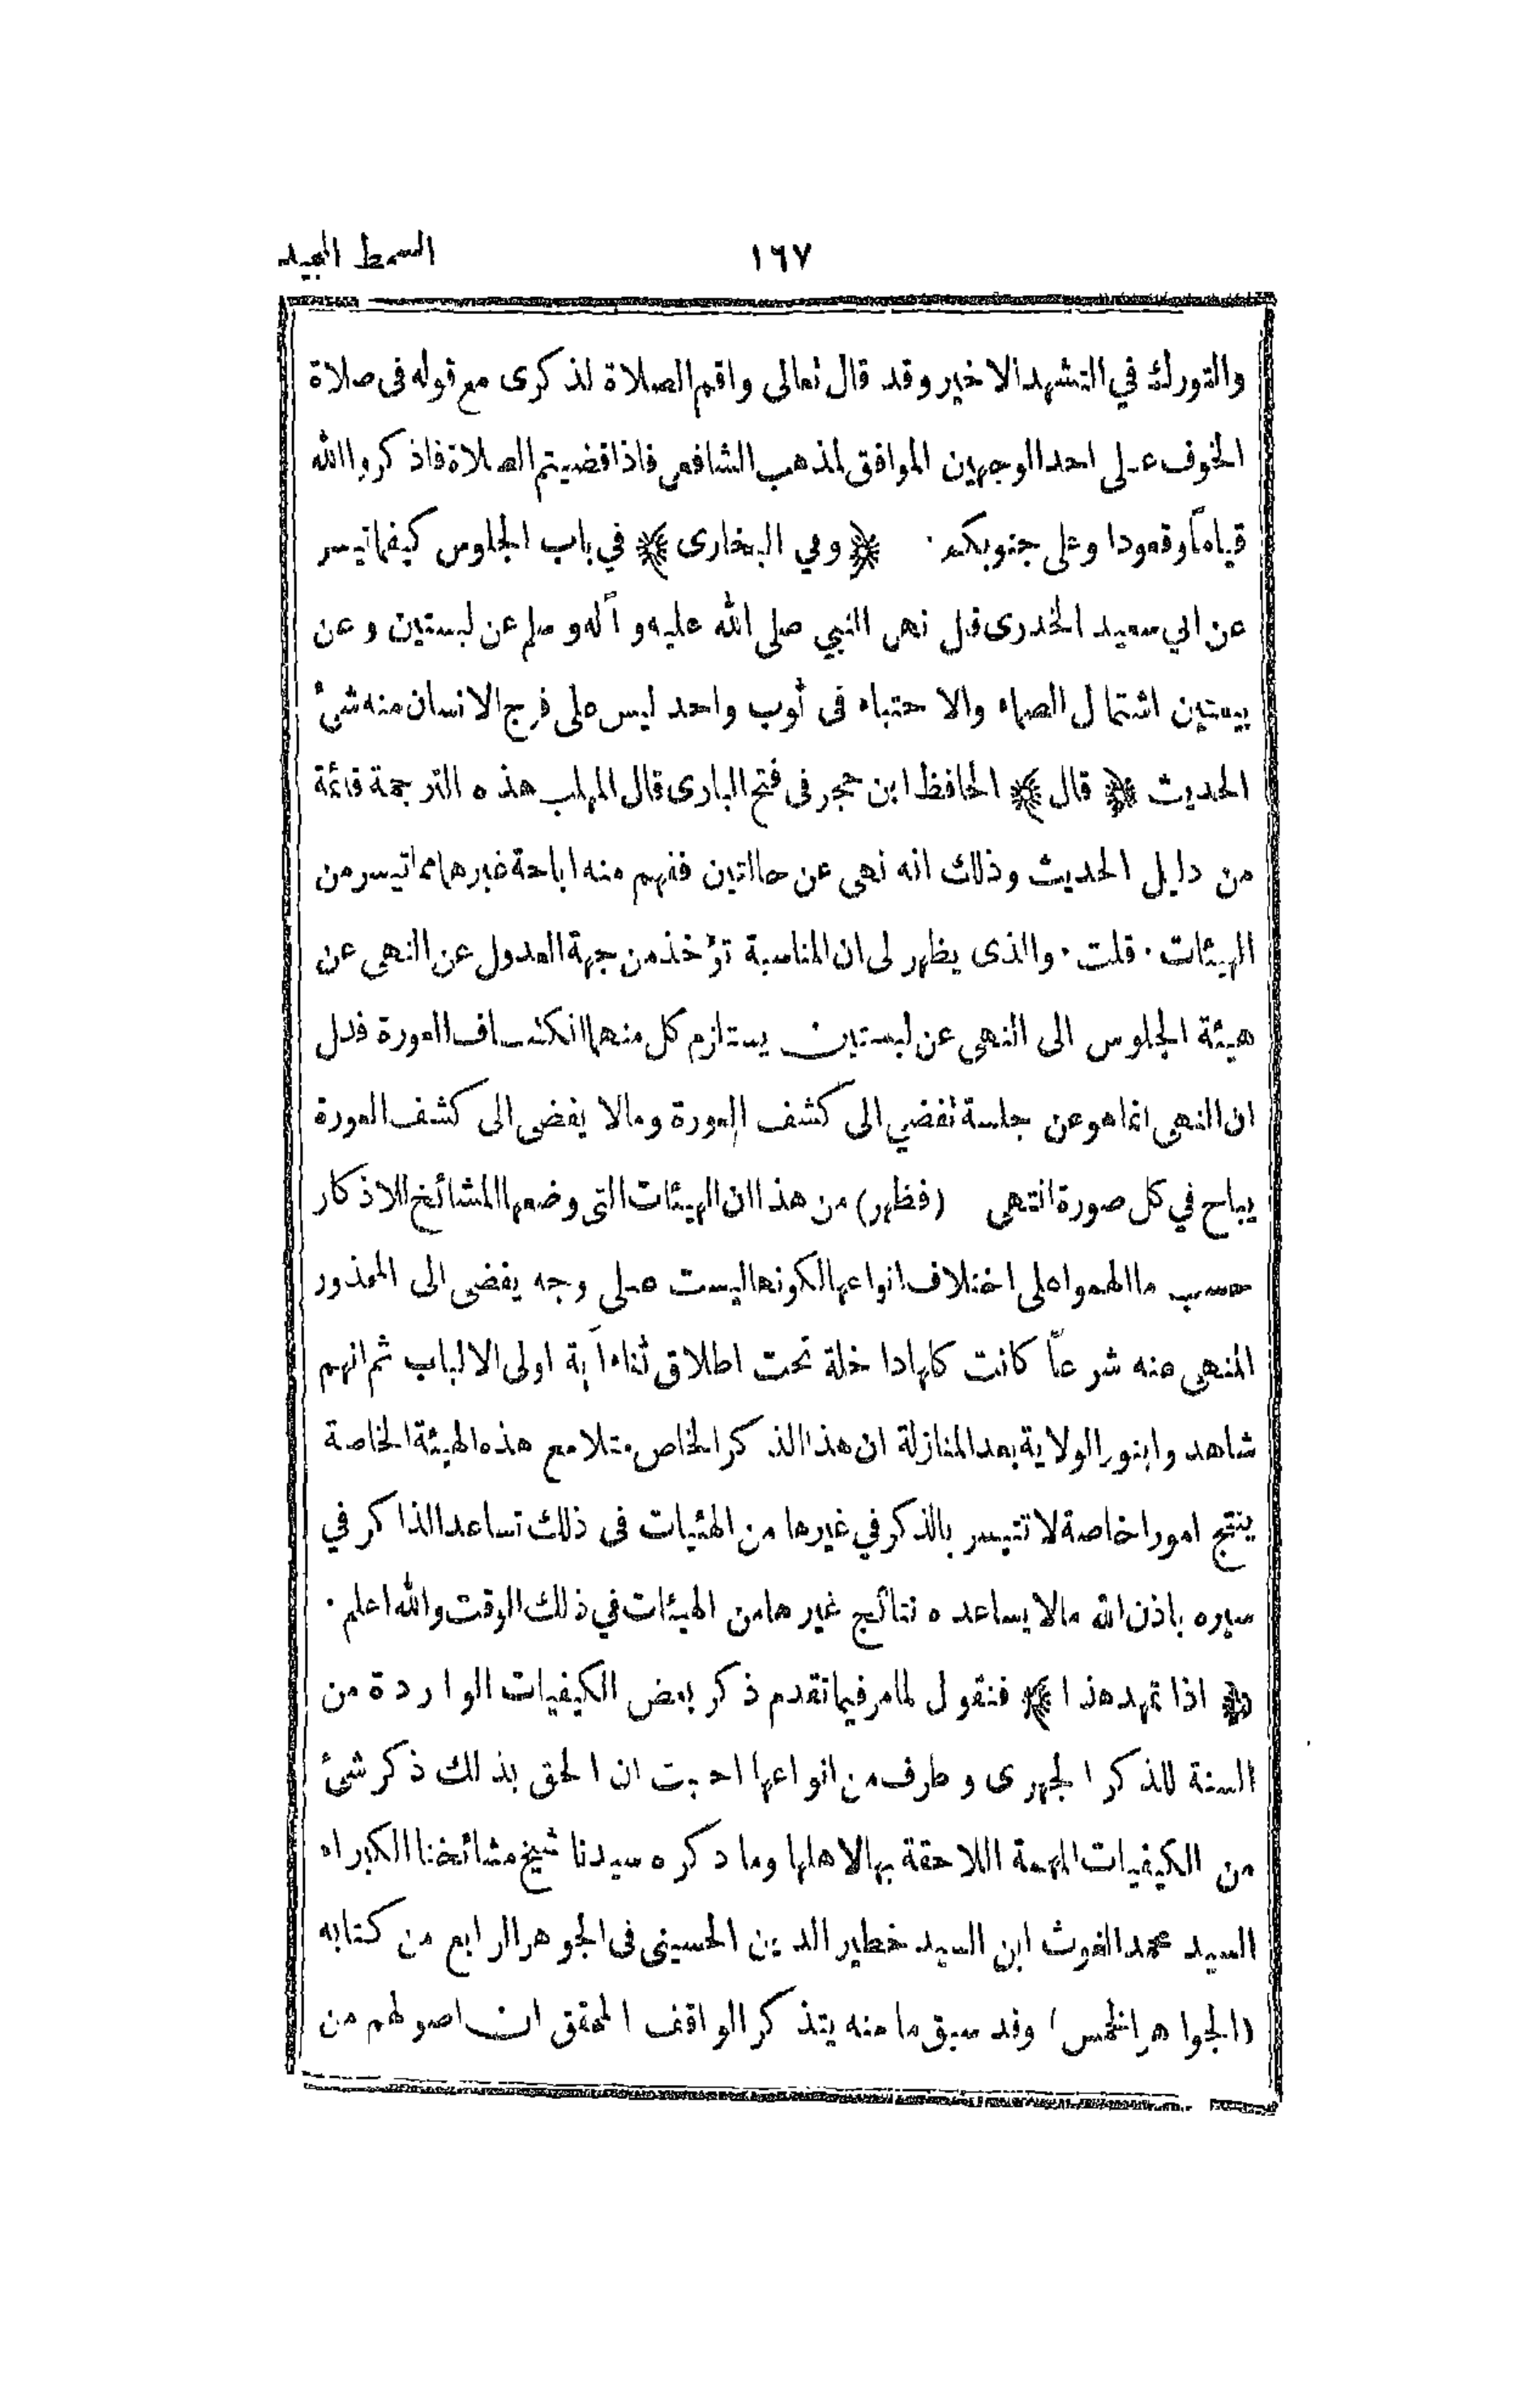 السمط المجيد
١٦٧
والتورك في التشهد الاخير وقد قال تعالى واقم الصلاة لذكرى مع قوله فى صلاة
الخوف على احد الوجهين الموافق لمذهب الشافعى فاذا قضيتم الصلاة فاذكروا الله
قياماً وقعودا وعلى جنوبكم ٠ ﴿ وفي البخارى ﴾ في باب الجلوس كيفما تيسر
عن ابي سعيد الخدرى قال نهى النبي صلى الله عليه وآله وسلم عن لبستين وعن
بيعتين اشتمال الصماء والاحتباء فى ثوب واحد ليس على فرج الانسان منه شئ
الحديث ﴿ قال ﴾ الحافظ ابن حجر فى فتح البارى قال المهلب هذه الترجمة قائمة
من دليل الحديث وذلك انه نهى عن حالتين ففهم منه اباحة غيرهما مما تيسر من
الهيئات ٠ قلت ٠ والذى يظهر لى ان المناسبة تؤخذ من جهة العدول عن النهى عن
هيئة الجلوس الى النهى عن لبستين يستلزم كل منهما انكشاف العورة فدل
ان النهى انما هو عن جلسة تفضي الى كشف العورة ومالا يفضى الى كشف العورة
يباح في كل صورة انتهى (فظهر) من هذا ان الهيئات التى وضعها المشائخ للاذكار
حسب ما الهموا على اختلاف انواعها لكونها ليست على وجه يفضى الى المحذور
المنهى عنه شرعاً كانت كلها داخلة تحت اطلاق ثناء آية اولى الالباب ثم انهم
شاهدوا بنور الولاية بعد المنازلة ان هذا الذكر الخاص مثلا مع هذه الهيئة الخاصة
ينتج امورا خاصة لا تتيسر بالذكر في غيرها من الهئيات فى ذلك تساعد الذاكر في
سيره باذن الله مالا يساعده نتائج غيرها من الهيئات في ذلك الوقت والله اعلم ٠
﴿ اذا تمهد هذا ﴾ فنقول لما مر فيما تقدم ذكر بعض الكيفيات الواردة من
السنة للذكر الجهرى وطرف من انواعها احببت ان الحق بذلك ذكر شئ
من الكيفيات المهمة اللاحقة بها لاهلها وما ذكره سيدنا شيخ مشائخنا الكبراء
السيد محمد الغوث ابن السيد خطير الدين الحسينى فى الجوهر الرابع من كتابه
(الجواهر الخمس) وقد سبق ما منه يتذكر الواقف المحقق ان اصولهم من